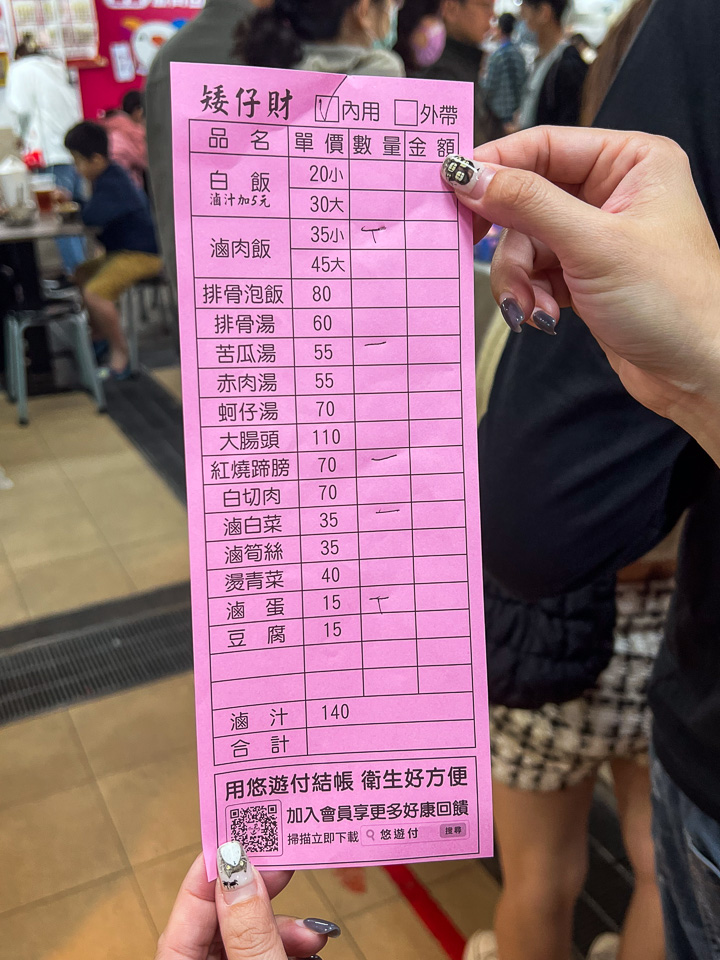 矮仔財 ☑內用 □外帶
品名 單價 數量 金額
白飯 20小
滷汁加5元 30大
滷肉飯 35小 丅
45大
排骨泡飯 80
排骨湯 60
苦瓜湯 55 一
赤肉湯 55
蚵仔湯 70
大腸頭 110
紅燒蹄膀 70 一
白切肉 70
滷白菜 35 一
滷筍絲 35
燙青菜 40
滷蛋 15 丅
豆腐 15
滷汁 140
合計
用悠遊付結帳 衛生好方便
加入會員享更多好康回饋
掃描立即下載 悠遊付 搜尋